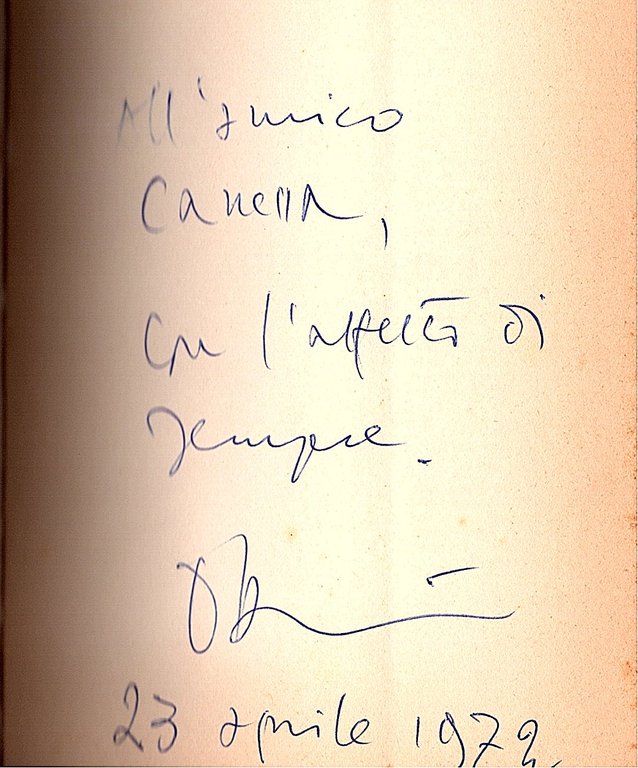 All'amico
Canella,
con l'affetto di
sempre.
23 aprile 1972.